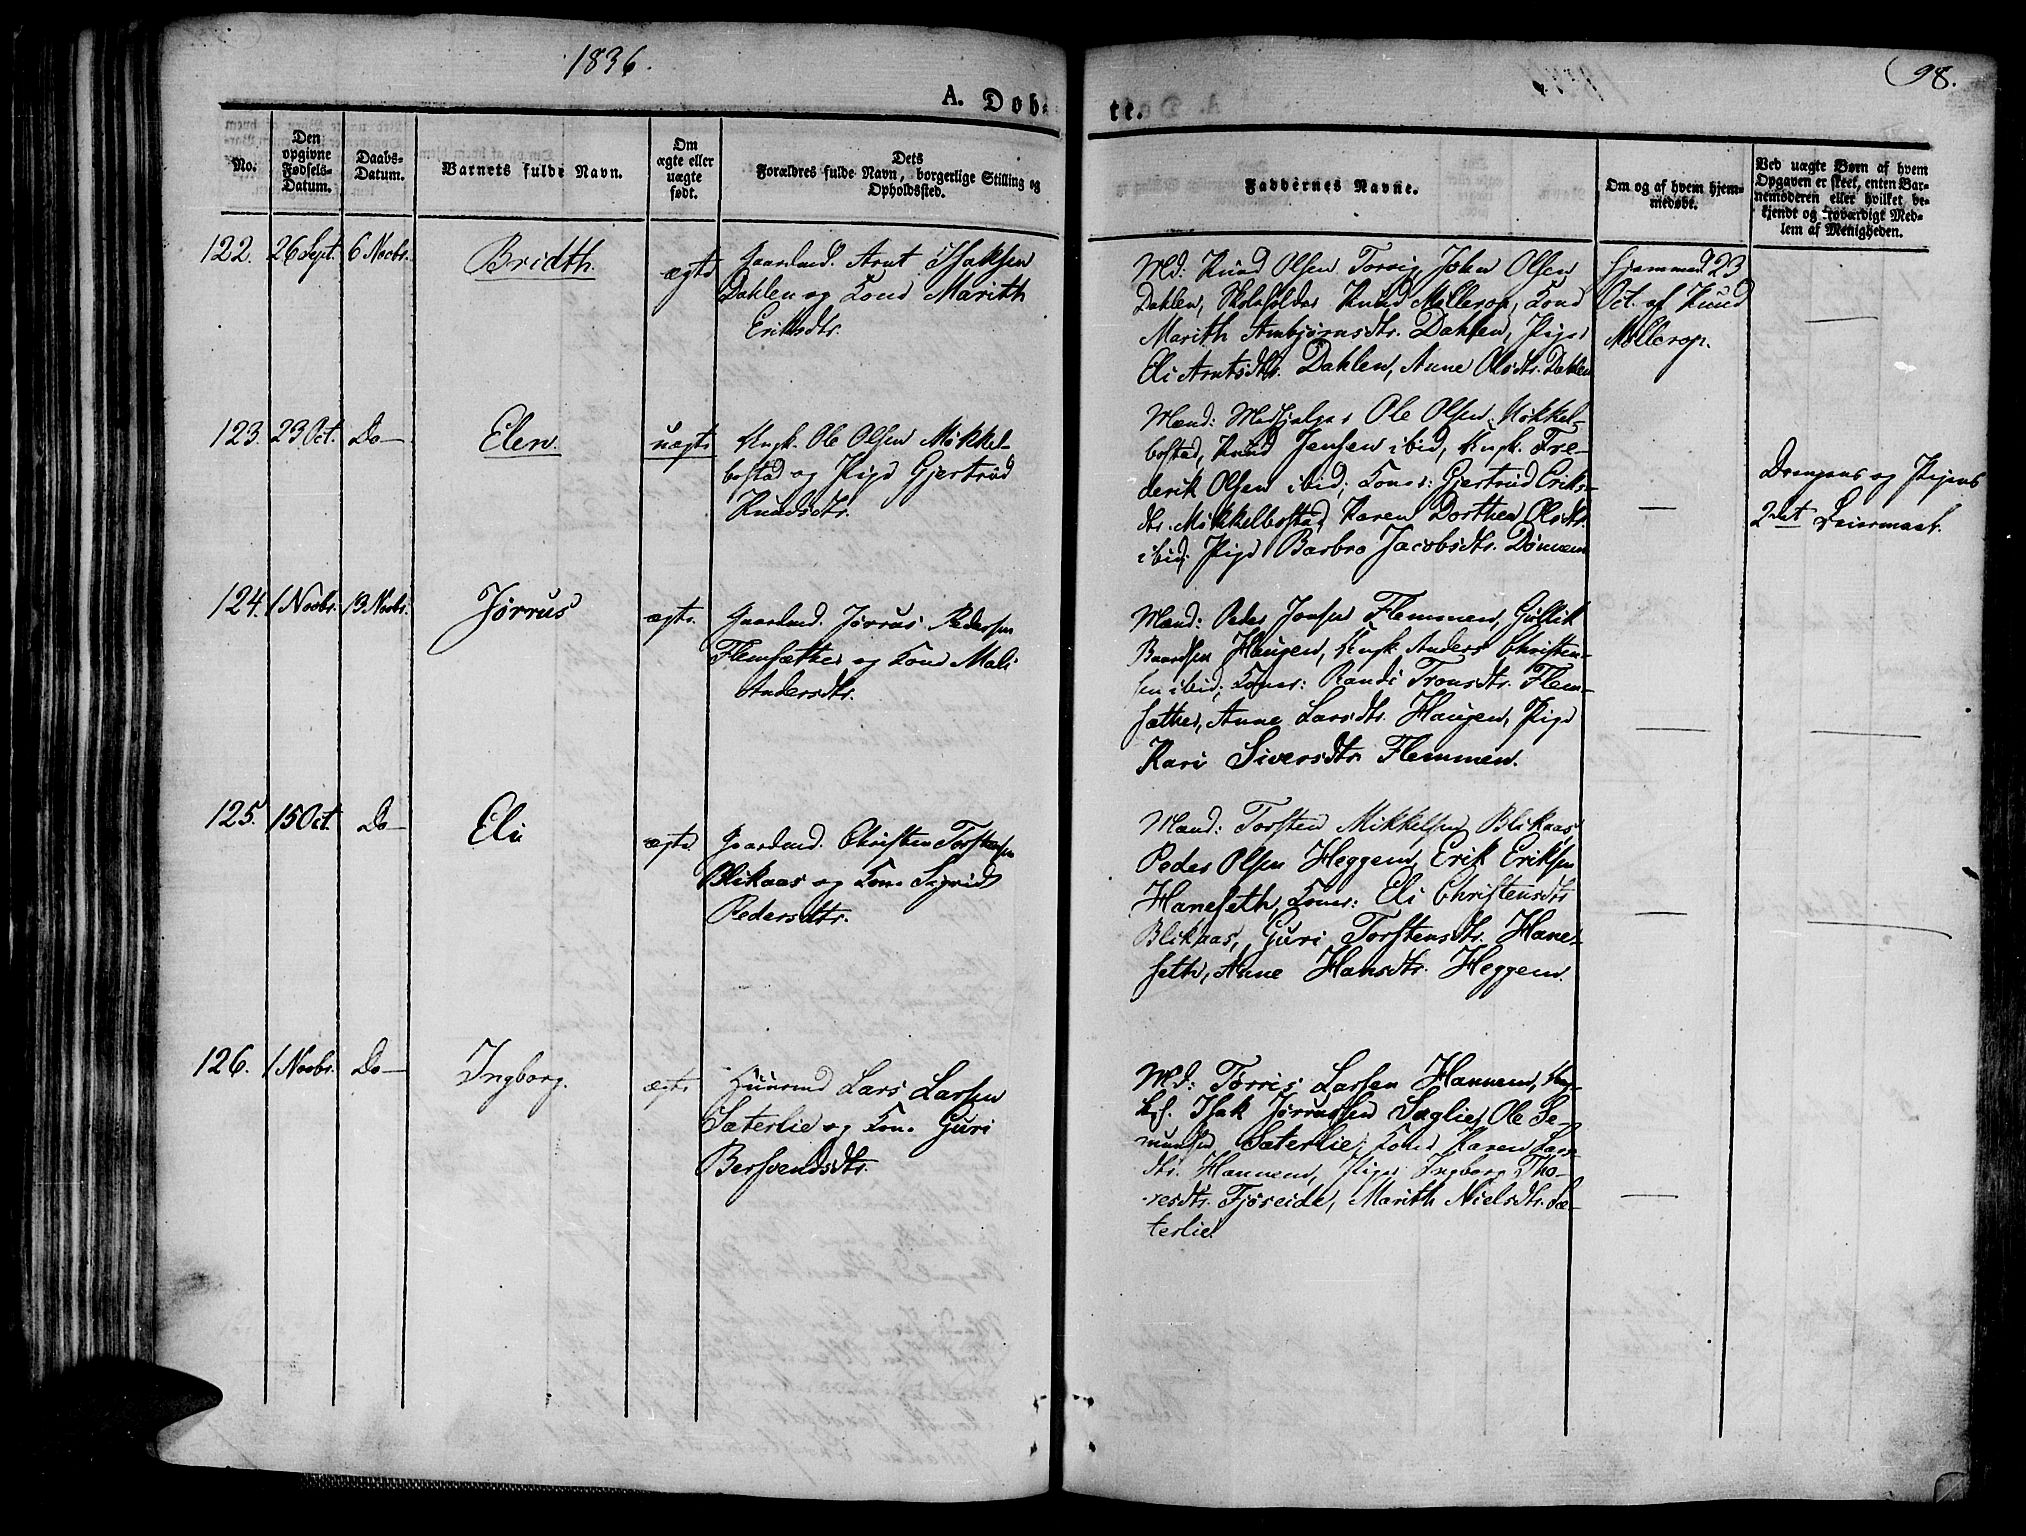 1836.
98.
A. Døb-
te.
No.
Den
opgivne
Fødsels-
Datum.
Daabs-
Datum.
Barnets fulde Navn.
Om
ægte eller
uægte
født.
Dets
Forældres fulde Navn, borgerlige Stilling og
Opholdssted.
Faddernes Navne.
Om og af hvem hjem-
medøbt.
Ved uægte Børn af hvem
Opgaven er skeet, enten Bar-
nemoderen eller hvilket be-
kjendt og troværdigt Med-
lem af Menigheden.
122. 26 Sept. 6 Novbr. Bridth. ægte
Gaardmd. Arnt Isaksen
Dahlen og Kone Marith
Eriksdtr.
Md: Knud Olsen Torvig, John Olsen
Dahlen, Skoleholder Knud Møllerop, Kone
Marith Arnbjørnsdtr. Dahlen, Pige
Eli Arntsdtr. Dahlen, Anne Olsdtr. Dahlen
Hjemmed 23
Oct. af Knud
Møllerop.
123. 23 Oct. Do Elen. uægte
Ungk. Ole Olsen Mökkel-
bostad og Pige Gjertrud
Knudsdtr.
Mænd: Medhjelper Ole Olsen Mökkel-
bostad, Knud Jensen ibid, Ungk. Fre-
derik Olsen ibid; Koner: Gjertrud Eriks-
dtr. Mökkelbostad, Karen Dorthea Olsdtr.
ibid; Pige Barbro Jacobsdtr. Dömem
Drengens og Pigens
2det Leiermaal.
124. 1 Novbr. 13 Novbr. Jörrus ægte.
Gaardmd. Jörrus Pedersen
Flemsæther og Kone Mali
Andersdtr.
Mænd: Peder Jonsen Flemmen, Gullik
Baardsen Haugen, Ungk. Anders Christen-
sen ibid; Koner: Randi Tronsdtr. Flem-
sæther, Anne Larsdtr. Haugen, Pige
Kari Siversdtr. Flemmen.
125. 15 Oct. Do Eli ægte
Gaardmd. Christen Torstensen
Blikaas og Kone Sigrid
Pedersdtr.
Mænd: Torsten Mikkelsen Blikaas,
Peder Olsen Heggem, Erik Eriksen
Haneseth, Koner: Eli Christensdtr
Blikaas, Guri Torstensdtr. Hane-
seth, Anne Hansdtr. Heggem.
126. 1 Novbr. Do Ingborg. ægte
Huusmd Lars Larsen
Sæterlie og Kone Guri
Bersvendsdtr.
Md: Torris Larsen Hannem, Ung-
k. Isak Jörrussen Sæglie, Ole Se-
mundsen Sæterlie, Kone Karen Lars-
dtr. Hannem, Piger Ingborg Tho-
resdtr. Fjöseide, Marith Nielsdtr. Sæ-
terlie.